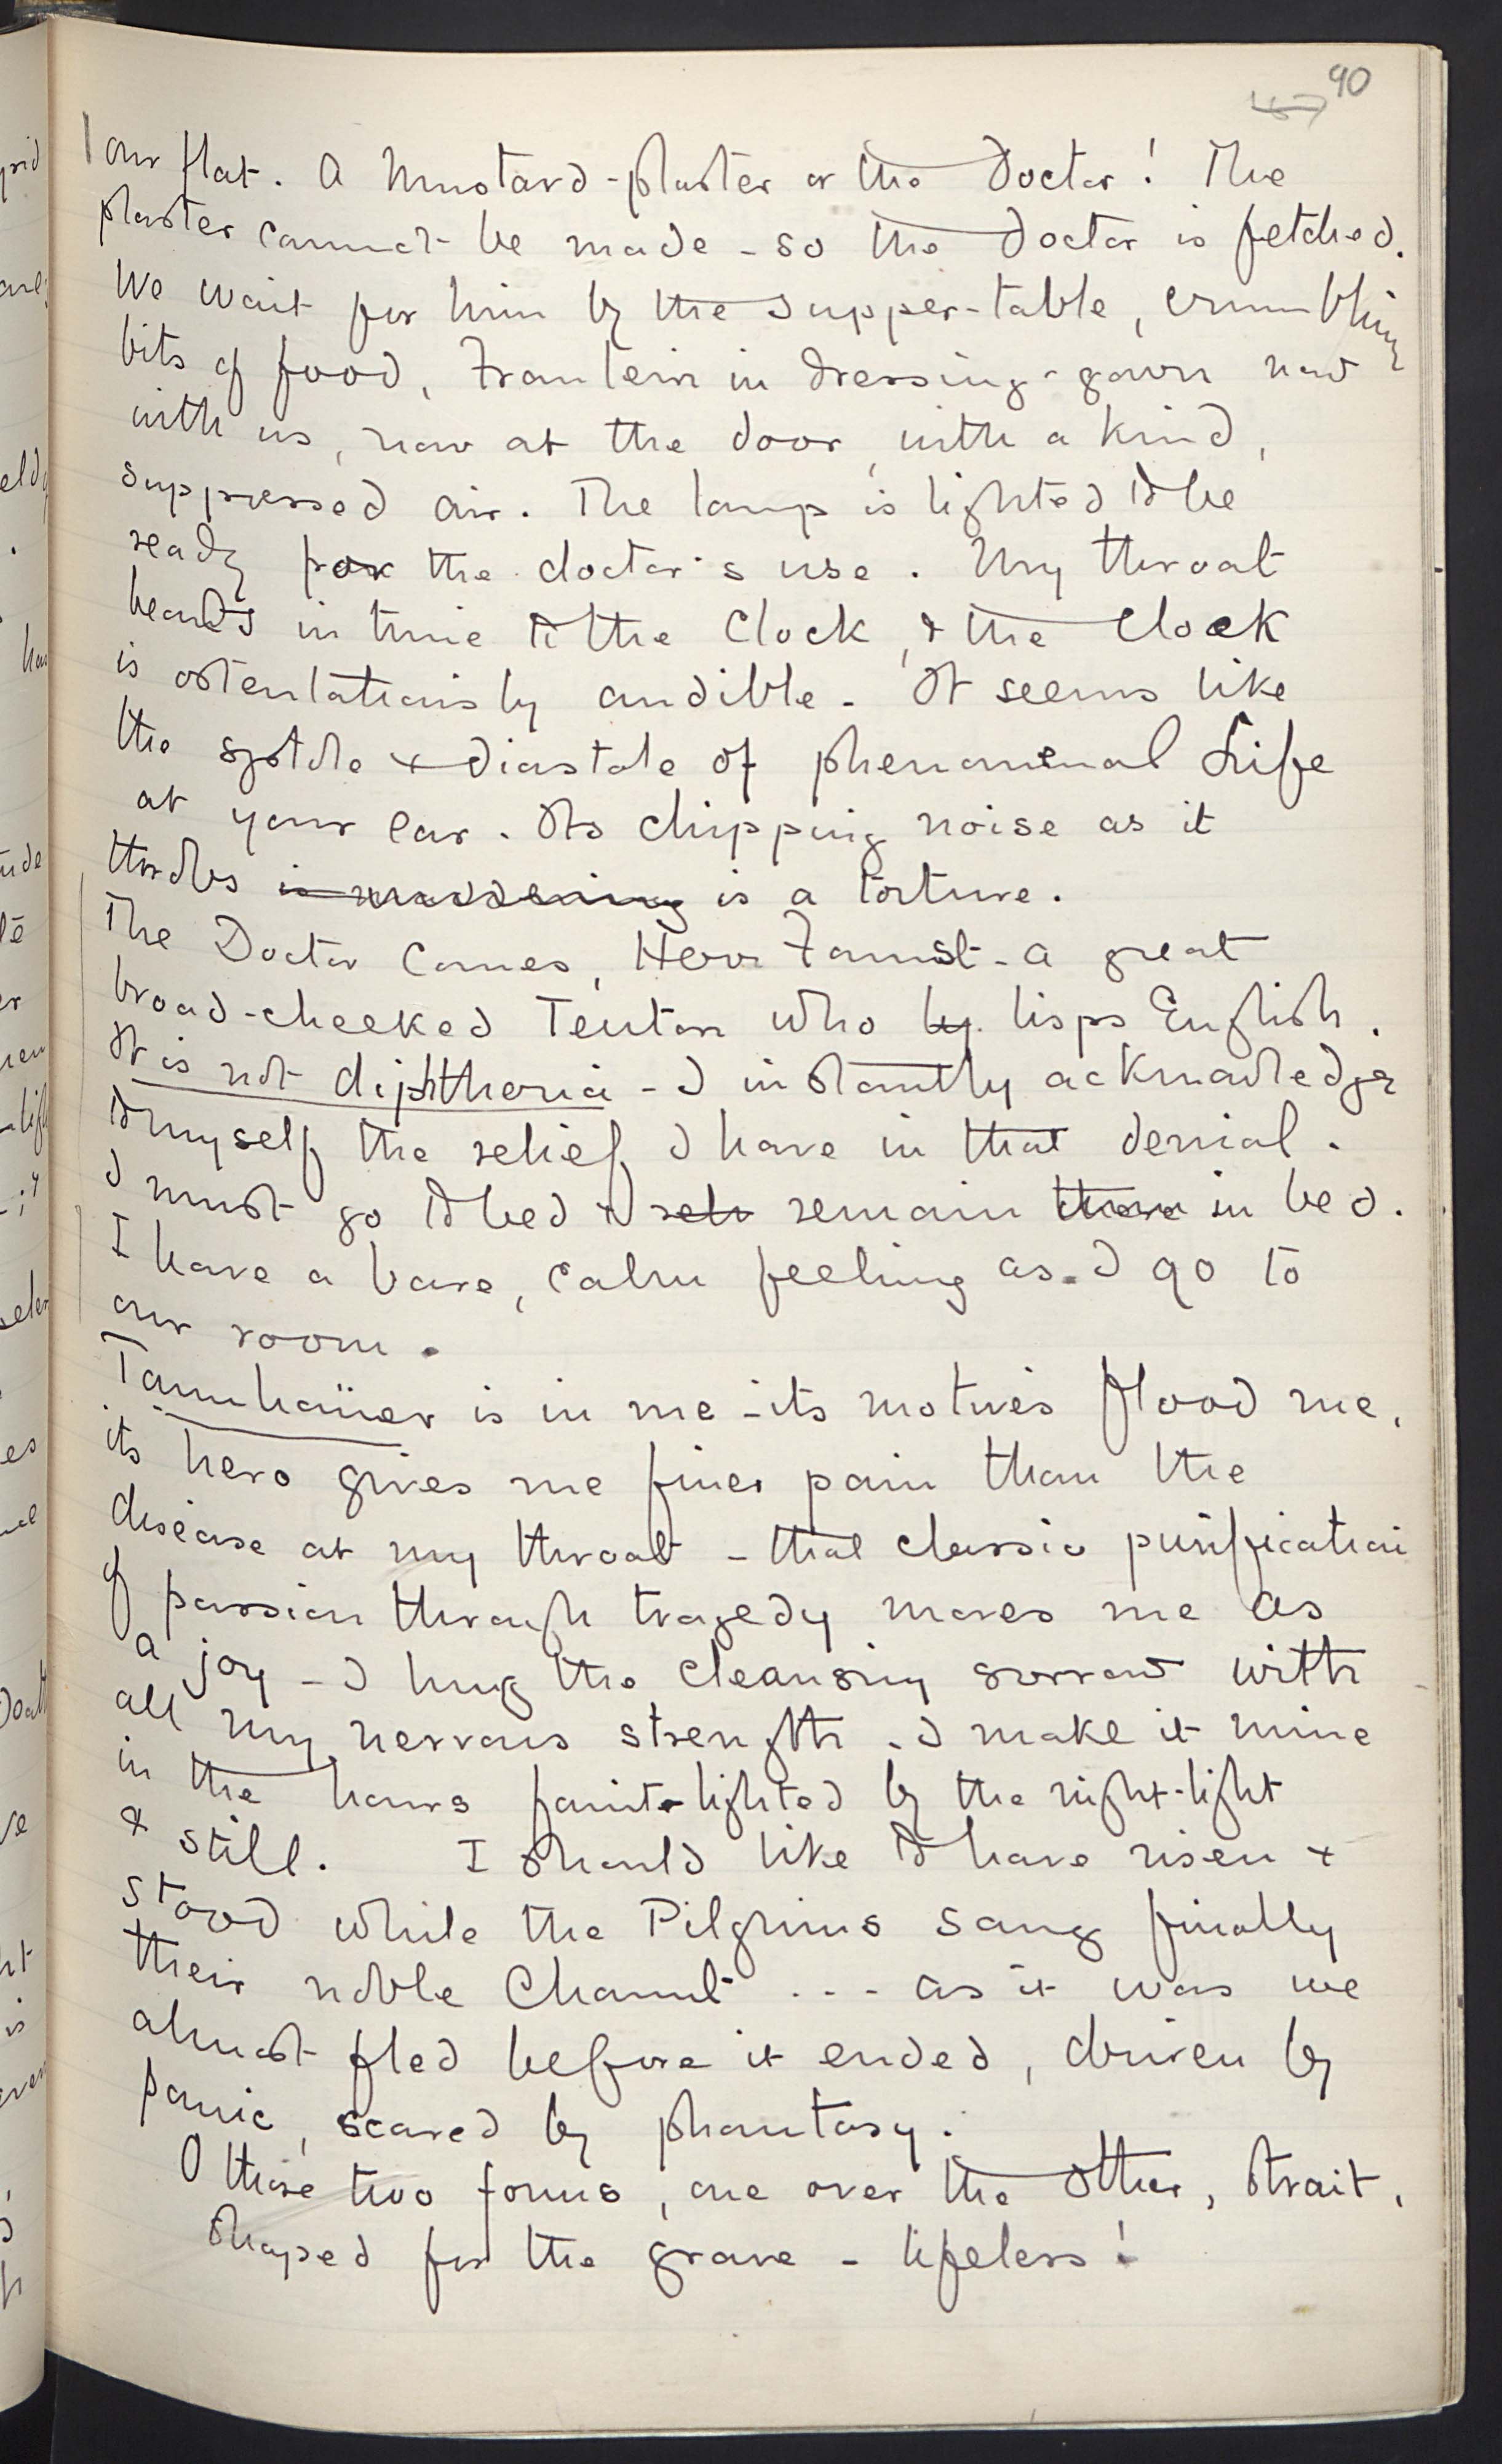 90
our flat. A Mustard-plaster or the Doctor! The
plaster cannot be made - so the doctor is fetched.
We wait for him by the supper-table, crumbling
bits of food, Fraulein in dressing-gown now
with us, now at the door, with a kind,
suppressed air. The lamp is lighted to be
ready for the doctor's use. My throat
beats in time to the Clock, & the Clock
is ostentatiously audible. It seems like
the systole & diastole of phenomenal Life
at your ear. Its chipping noise as it
throbs is maddening is a torture.
The Doctor comes, Herr Faust - a great
broad-cheeked Teuton who ly. lisps English.
It is not diphtheria - I instantly acknowledge
to myself the relief I have in that denial.
I must go to bed & remain there in bed.
I have a bare, calm feeling as I go to
our room.
Tannhaüser is in me - its motives flood me,
its hero gives me finer pain than the
disease at my throat - that classic purification
of passion through tragedy moves me as
a joy - I hug the cleansing sorrow with
all my nervous strength. I make it mine
in the hours faint-lighted by the night-light
& still. I should like to have risen &
stood while the Pilgrims sang finally
their noble Chaunt ... as it was we
almost fled before it ended, driven by
panic, scared by phantasy.
O those two forms, one over the other, strait,
shaped for the grave - lifeless!